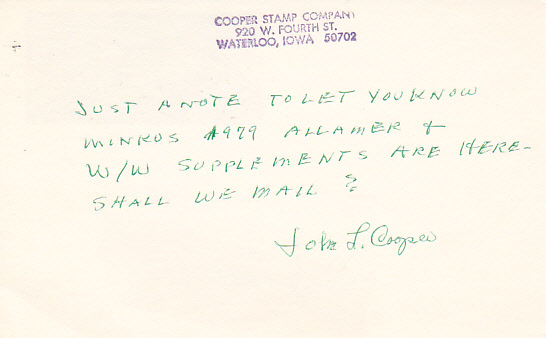 COOPER STAMP COMPANY
920 W. FOURTH ST.
WATERLOO, IOWA 50702
JUST A NOTE TO LET YOU KNOW
MINKUS 1979 ALLAMER &
W/W SUPPLEMENTS ARE HERE-
SHALL WE MAIL ?
John L. Cooper